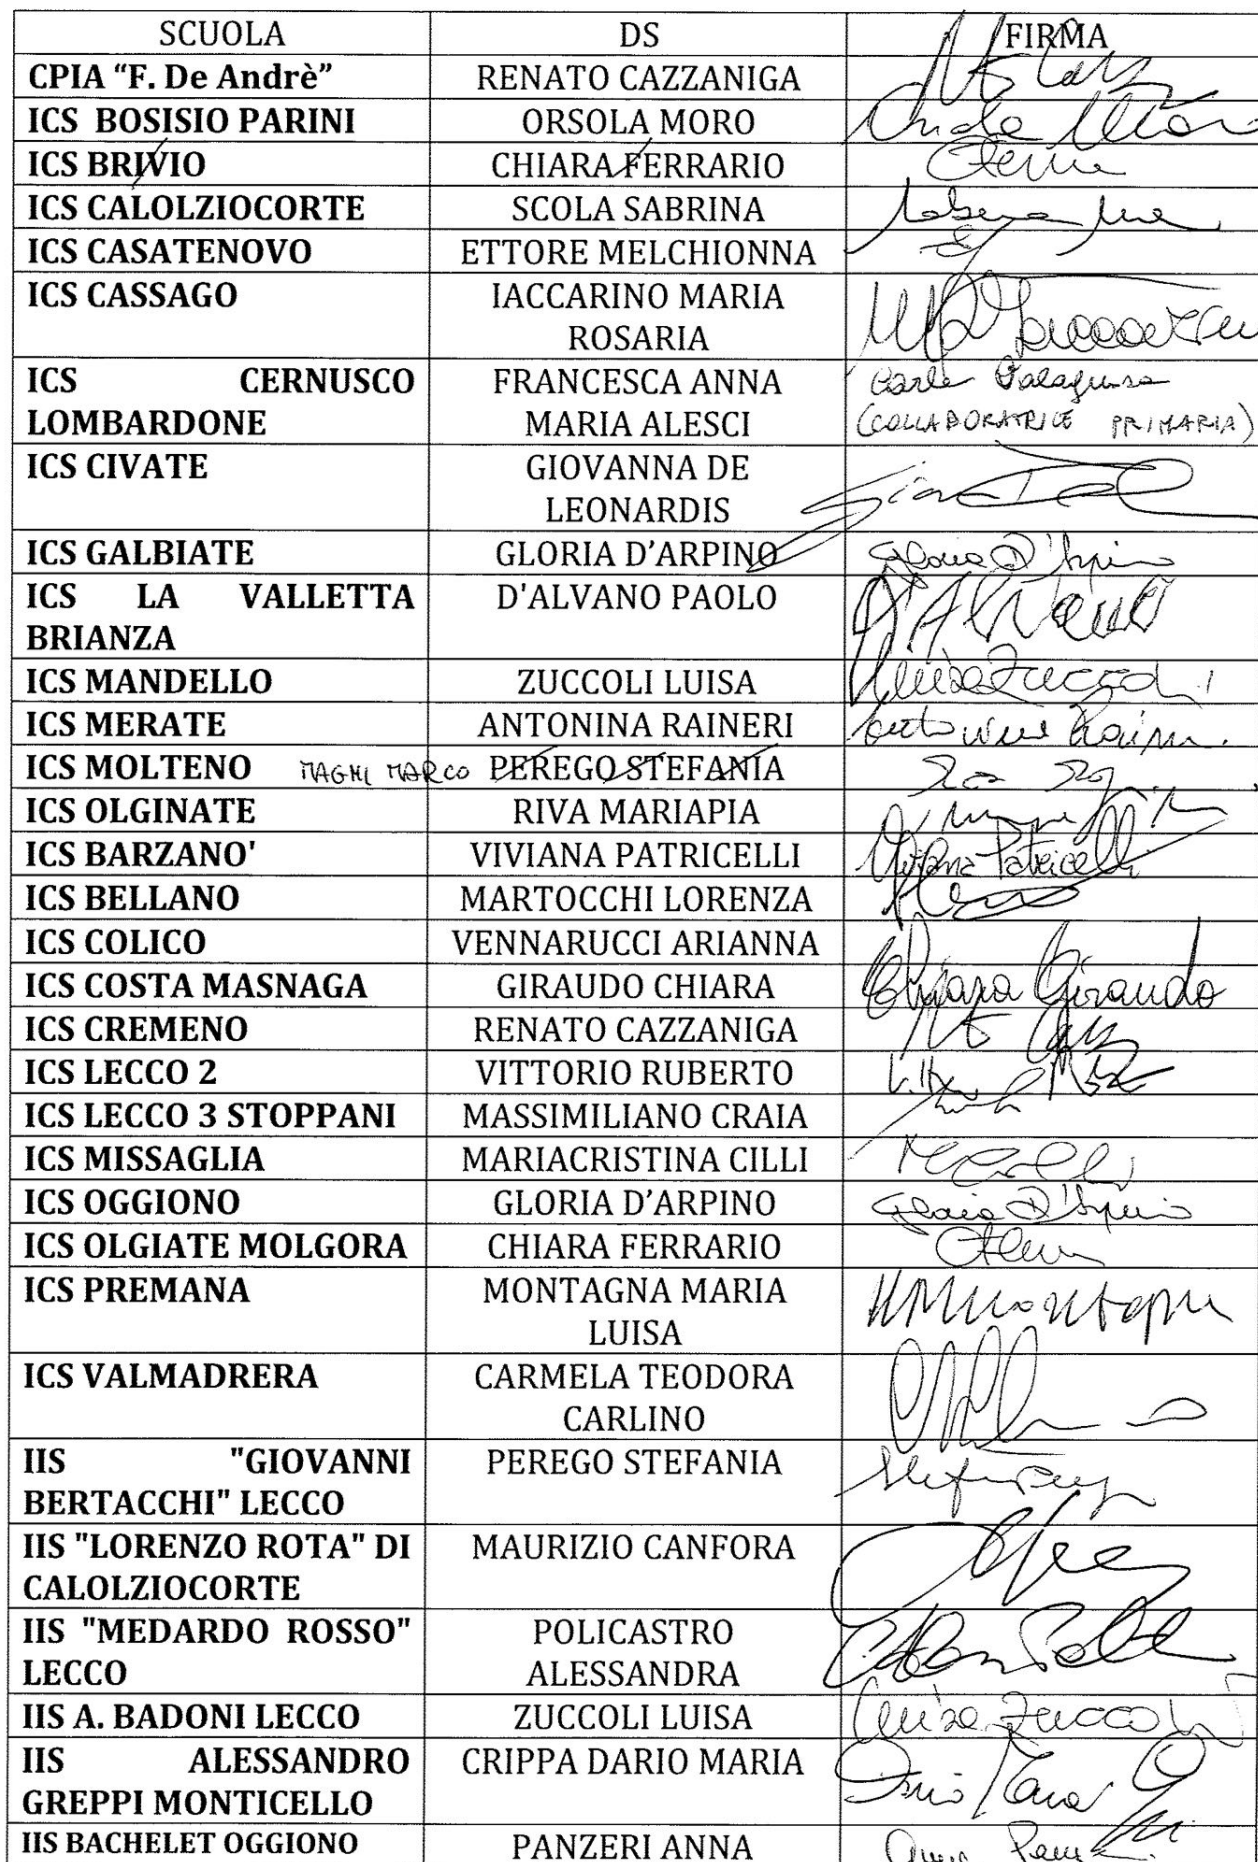 SCUOLA DS FIRMA
CPIA “F. De Andrè” RENATO CAZZANIGA
ICS BOSISIO PARINI ORSOLA MORO
ICS BRIVIO CHIARA FERRARIO
ICS CALOLZIOCORTE SCOLA SABRINA
ICS CASATENOVO ETTORE MELCHIONNA
ICS CASSAGO IACCARINO MARIA
ROSARIA
ICS CERNUSCO FRANCESCA ANNA
LOMBARDONE MARIA ALESCI (COLLABORATRICE PRIMARIA)
ICS CIVATE GIOVANNA DE
LEONARDIS
ICS GALBIATE GLORIA D’ARPINO Gloria D'Arpino
ICS LA VALLETTA D'ALVANO PAOLO D'ALVANO
BRIANZA
ICS MANDELLO ZUCCOLI LUISA Luisa Zuccoli
ICS MERATE ANTONINA RAINERI
ICS MOLTENO MAGHI MARCO PEREGO STEFANIA
ICS OLGINATE RIVA MARIAPIA
ICS BARZANO' VIVIANA PATRICELLI Viviana Patricelli
ICS BELLANO MARTOCCHI LORENZA
ICS COLICO VENNARUCCI ARIANNA
ICS COSTA MASNAGA GIRAUDO CHIARA Chiara Giraudo
ICS CREMENO RENATO CAZZANIGA
ICS LECCO 2 VITTORIO RUBERTO
ICS LECCO 3 STOPPANI MASSIMILIANO CRAIA
ICS MISSAGLIA MARIACRISTINA CILLI
ICS OGGIONO GLORIA D’ARPINO Gloria D'Arpino
ICS OLGIATE MOLGORA CHIARA FERRARIO
ICS PREMANA MONTAGNA MARIA
LUISA
ICS VALMADRERA CARMELA TEODORA
CARLINO
IIS "GIOVANNI PEREGO STEFANIA
BERTACCHI" LECCO
IIS "LORENZO ROTA" DI MAURIZIO CANFORA
CALOLZIOCORTE
IIS "MEDARDO ROSSO" POLICASTRO
LECCO ALESSANDRA
IIS A. BADONI LECCO ZUCCOLI LUISA Luisa Zuccoli
IIS ALESSANDRO CRIPPA DARIO MARIA
GREPPI MONTICELLO
IIS BACHELET OGGIONO PANZERI ANNA